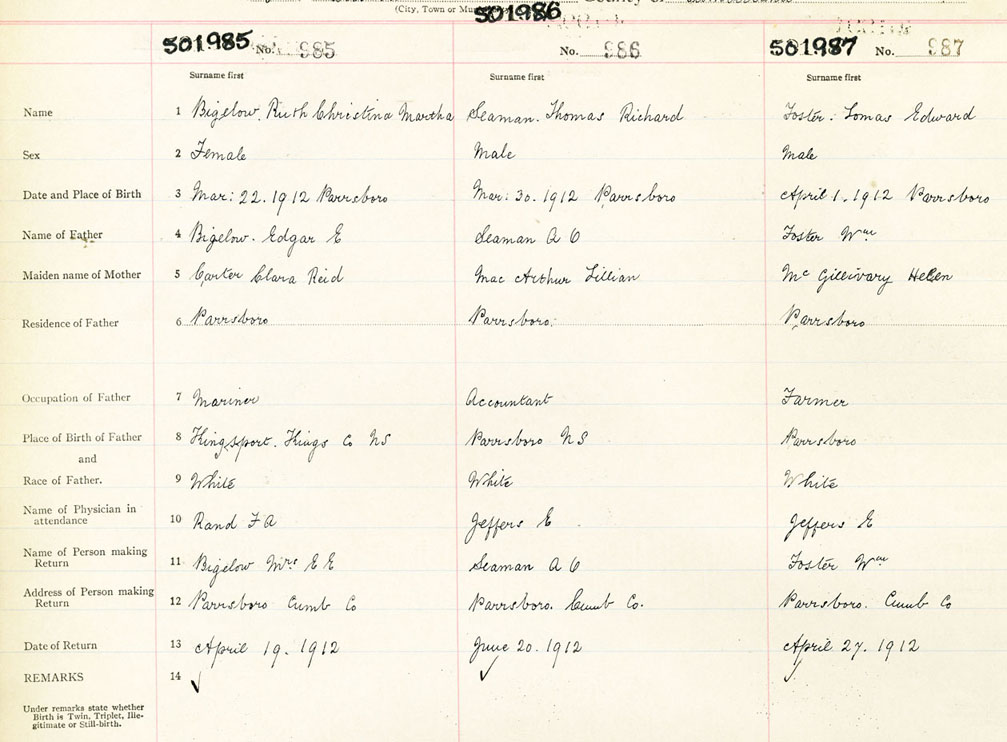 (City, Town or
501986
501985 No. 985
No. 986
501987 No. 987
Surname first Surname first Surname first
Name 1 Bigelow. Ruth Christina Martha Seaman. Thomas Richard Foster. Lomas Edward
Sex 2 Female Male Male
Date and Place of Birth 3 Mar: 22. 1912 Parrsboro Mar: 30. 1912 Parrsboro April 1. 1912 Parrsboro
Name of Father 4 Bigelow. Edgar E Seaman A O Foster Wm
Maiden name of Mother 5 Carter Clara Reid Mac Arthur Lillian Mc Gillivary Helen
Residence of Father 6 Parrsboro Parrsboro. Parrsboro
Occupation of Father 7 Mariner Accountant Farmer
Place of Birth of Father 8 Kingsport. Kings Co NS Parrsboro NS Parrsboro
and
Race of Father. 9 White White White
Name of Physician in
attendance 10 Rand F A Jeffers E Jeffers E
Name of Person making
Return 11 Bigelow Mrs E E Seaman A O Foster Wm
Address of Person making
Return 12 Parrsboro Cumb Co Parrsboro. Cumb Co. Parrsboro. Cumb Co
Date of Return 13 April 19. 1912 June 20. 1912 April 27. 1912
REMARKS 14 ✓ ✓ ✓
Under remarks state whether
Birth is Twin, Triplet, Ille-
gitimate or Still-birth.